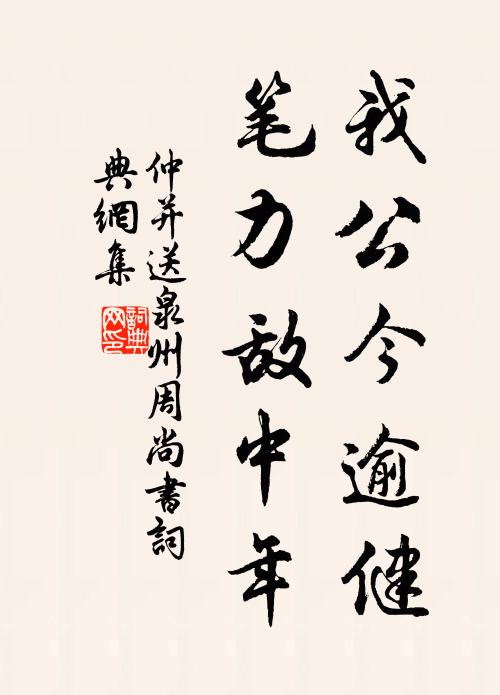 我公今逾健
笔力敌中年
仲并送泉州周尚書詞
典網集
詞典网印